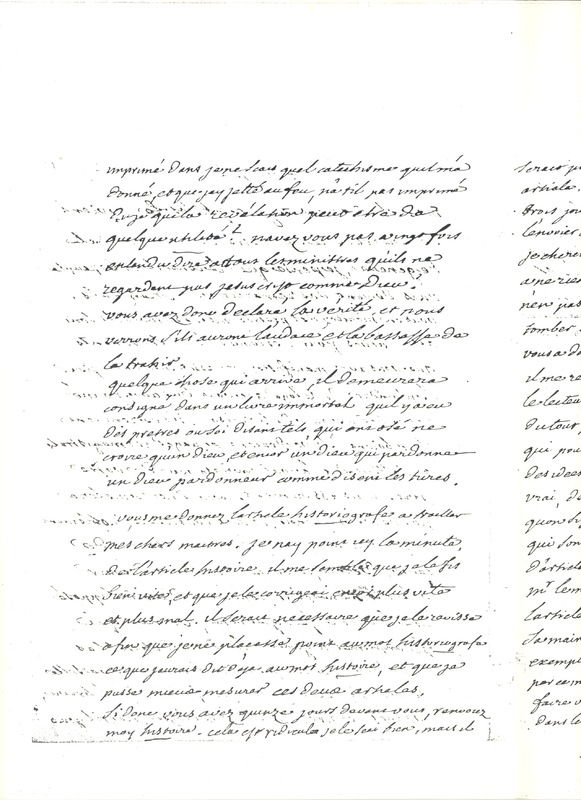 imprimé dans je ne scais quel catechisme quil m'a
donné, et que jay jetté au feu, n'a til pas imprimé
dis je que la revelation peut etre de
quelque utilité? navez vous pas vingt fois
entendu dire a tous les ministres quils ne
regardent pas jesus crist comme Dieu?
vous avez donc declaré la verité, et nous
verrons s'ils auront l'audace et la bassesse de
la trahir.
quelque chose qui arrive, il demeurera
consigné dans un livre immortel quil y a eu
des pretres ou soi disant tels qui ont osé ne
croire quun dieu, et encor un dieu qui pardonne
un dieu pardonneur comme disent les turcs.
vous me donnez l'article historiografe a traitter
mes chers maitres. je nay point icy la minute
de l'article histoire. il me semble que je le fis
bien vite, et que je le corrigeai encor plus vite
et plus mal. il serait necessaire que je le revisse
afin que je ne placasse point au mot historiografe
ce que jaurais dit deja au mot histoire, et que je
pusse mieux mesurer ces deux articles.
si donc vous avez quinze jours devant vous, renvoiez
moy histoire. cela est ridicule je le sai bien, mais il
serait
article
trois jou
l'envoier
je cherc
a ne rien
n'en pas
tomber
vous a do
il me re
le lecteu
du tout,
qui pou
des idées
vrai, de
quon si
qui son
d'article
mr le m
l'article
sa main
exempl
par ce m
faire v
dans le